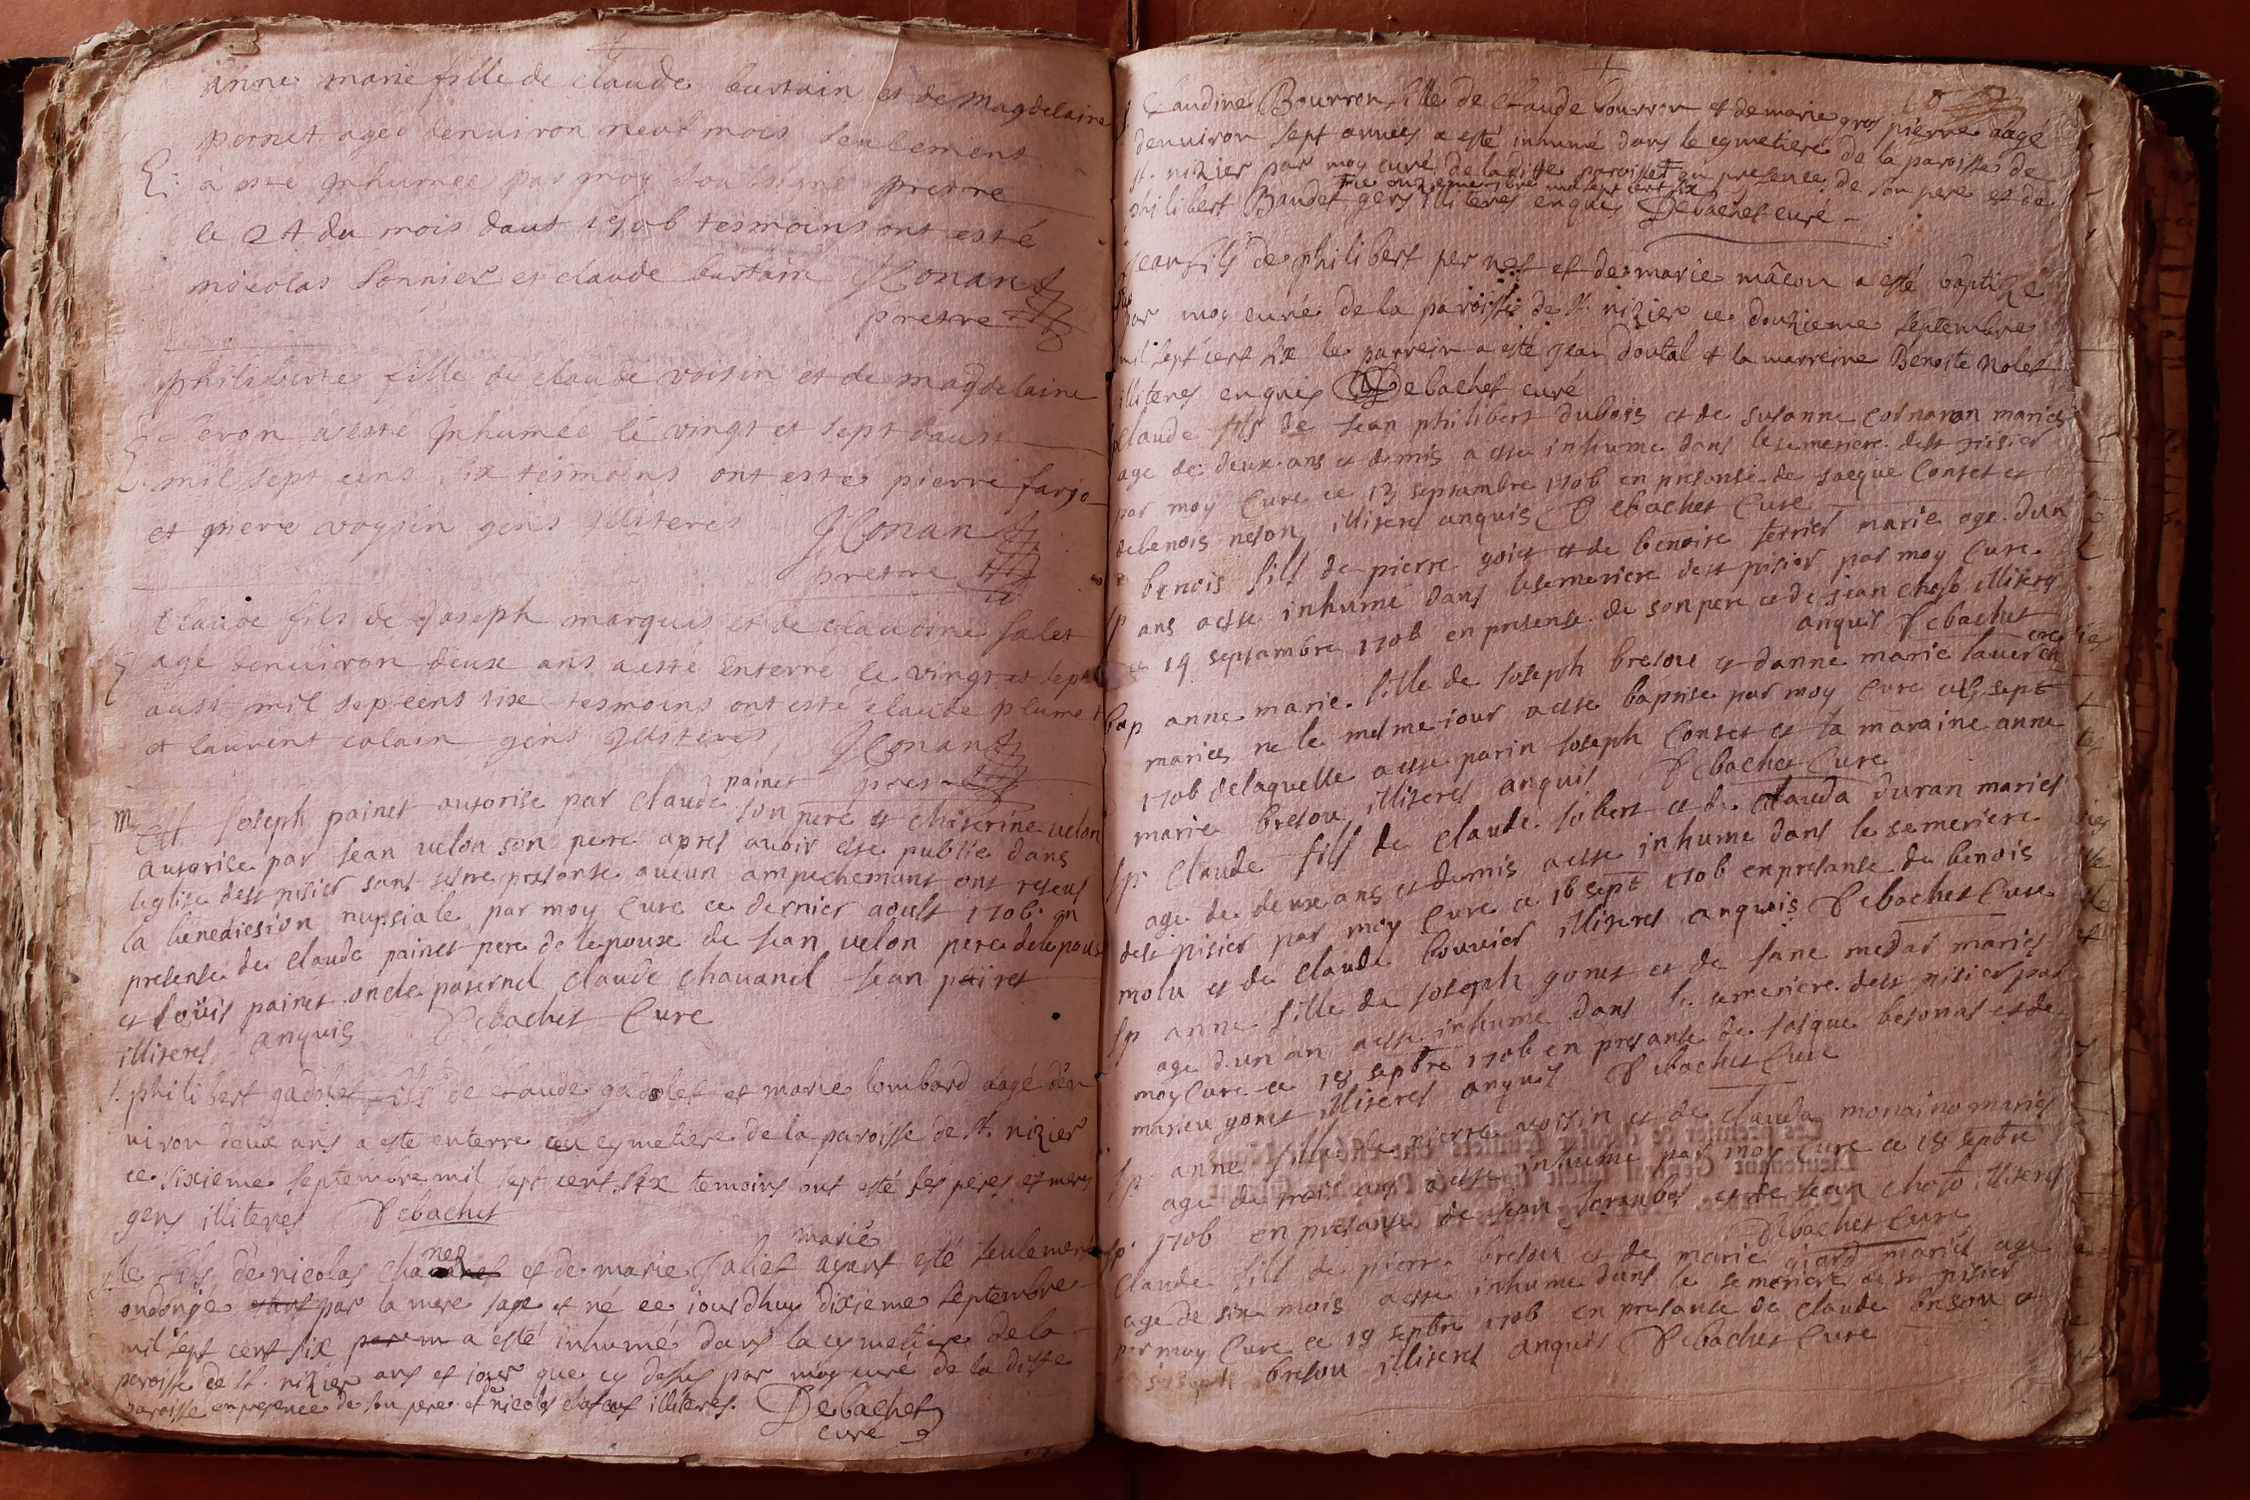 anne marie fille de claude bastain et de magdelaine
pernet agee denuiron neuf mois seulement
a esté inhumee par moy soussigné prestre
le 24 du mois daut 1706 tesmoins ont esté
nicolas sonnier et claude bastain JConant
prestre
philiberte fille de claude voisin et de magdelaine
a esté inhumée le vingt et sept daust
mil sept cens six tesmoins ont esté pierre farjo
et piere voysin gens illiteres JConant
prestre
Claude fils de Joseph marquis et de claudine salet
agé denuiron deux ans a esté enterré le vingt et sept
aust mil sept cens six tesmoins ont esté claude plumet
et laurent colain gens illiteres JConant
pres
m Joseph painet autorise par claude painet son pere et chaterine velon
autorise par Jean velon son pere apres auoir este publie dans
leglise dest nisier sans estre presante aucun ampechemant ont reseus
la benedicsion nupsiale par moy Cure ce dernier aoust 1706 en
presense de claude painet pere de lepoux de Jean velon pere de lepouse
et louis painet oncle paternel claude chauanel Jean painet
illiteres anquis Debachet Cure
philibert gadolet fils de claude gadolet et marie lombard aagé den
uiron deux ans a este enterre au cymetiere de la paroisse de st. nizier
ce sixieme septembre mil sept cent six temoins ont esté ses peres et meres
gens illiteres Debachet
le fils de nicolas et de marie saliet marié ayant esté seulement
ondoyé par la mere sage et né ce iourdhuy dixieme septembre
mil sept cent six a esté inhumé dans la cymetiere de la
paroisse de st. nizier ans et iour que cy desus par moy curé de la ditte
paroisse en presence de son pere et nicolas illiteres. Debachet
cure
Claudine Bourron fille de claude bourron et de marie gros pierre aagé
denuiron sept années a esté inhumé dans le cymetiere de la paroisse de
st. nizier par moy curé de laditte paroisse en presence de son pere et de
ce onzieme septembre mil sept cent six
philibert Baudet gens illiteres enquis Debachet curé
Jean fils de philibert pernet et de marie mâcon a esté baptizé
par moy curé de la paroisse de st. nizier ce douzieme septembre
mil sept cent six le parrein a esté jean doutal et la marreine Benoite Nolet
illiteres enquis Debachet curé
claude fils de Jean philibert dubois et de susanne cornaron maries
age de deux ans et demis a este inhume dans le semetiere dest nisier
par moy Cure ce 13 septambre 1706 en presanse de Jacque Contet et
de benois neson illiteres anquis Debachet Cure
benois fils de pierre goiet et de benoite terrier marie age dun
ans aeste inhume dans le semetiere dest nisier par moy Cure
ce 14 septambre 1706 en presense de son pere et de jean choso illiteres
anquis Debachet
cure
bap anne marie fille de Joseph bresou et danne marie lauer
maries ne le mesme iour aeste baptise par moy Cure sept
1706 delaquelle aeste parin Joseph Contet et la maraine anne
marie bresou illiteres anquis Debachet Cure
Sp claude fils de claude Jobert et de clauda duran maries
age de deux ans et demis aeste inhume dans le semetiere
dest nisier par moy Cure ce 16 sept 1706 en presanse de benois
molu et de claude bouuier illiteres anquis Debachet Cure
Sp anne fille de Joseph gonet et de Jane medar maries
age dun an aeste inhume dans le semetiere dest nisier par
moy Cure ce 18 septbre 1706 en presanse de Jasque besonas et de
marieu gonet illiteres anquis Debachet Cure
Sp anne fille de pierre voisin et de clauda monaino maries
age de trois ans aeste inhume par moy Cure ce 18 septbre
1706 en presanse de Jean et de Jean choso illiteres
Debachet Cure
Sp claude fils de pierre bresou et de marie giard maries age
age de six mois aeste inhume dans le semetiere de st nisier
par moy Cure ce 19 septbre 1706 en presanse de claude bresou et
bresou illiteres anquis Debachet Cure